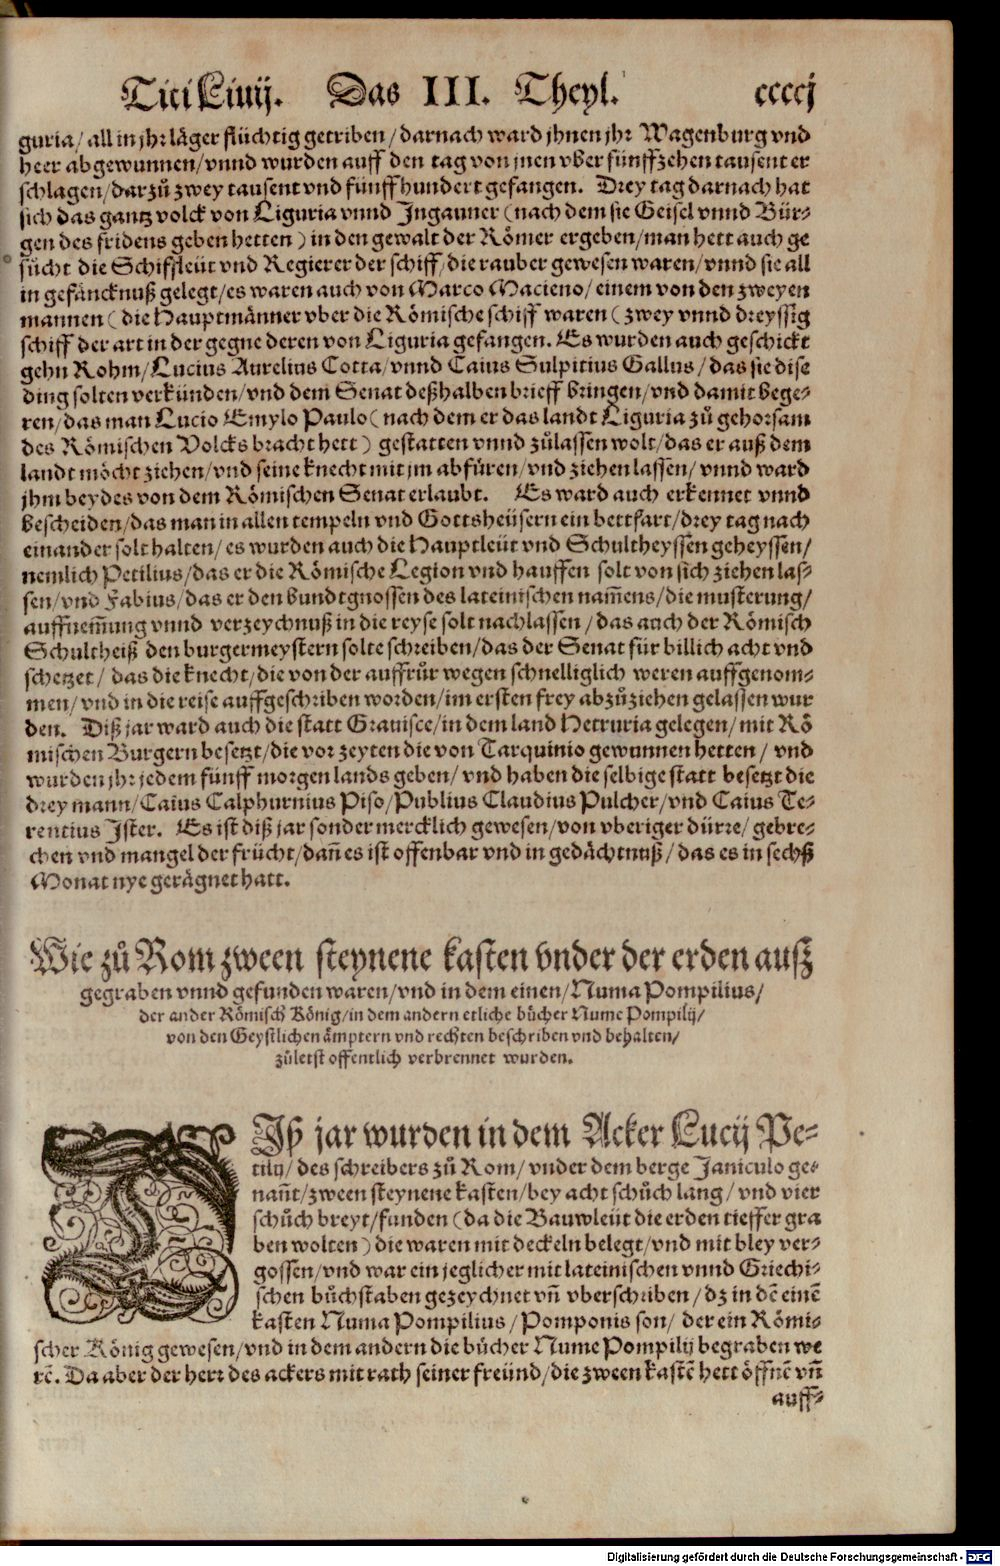 Titi Liuij. Das III. Theyl. ccccj
guria/ all in jhr läger flüchtig getriben/ darnach ward jhnen jhr Wagenburg vnd
heer abgewunnen/ vnnd wurden auff den tag von jnen vber fünffzehen tausent er
schlagen/ darzů zwey tausent vnd fünffhundert gefangen. Drey tag darnach hat
sich das gantz volck von Liguria vnnd Ingauner (nach dem sie Geisel vnnd Bür⸗
gen des fridens geben hetten) in den gewalt der Römer ergeben/ man hett auch ge
sücht die Schiffleüt vnd Regierer der schiff/ die rauber gewesen waren/ vnnd sie all
in gefäncknuß gelegt/ es waren auch von Marco Macieno/ einem von den zweyen
mannen (die Hauptmänner vber die Römische schiff waren (zwey vnnd dreyssig
schiff der art in der gegne deren von Liguria gefangen. Es wurden auch geschickt
gehn Rohm/ Lucius Aurelius Cotta/ vnnd Caius Sulpitius Gallus/ das sie dise
ding solten verkünden/ vnd dem Senat deßhalben brieff bringen/ vnd damit bege⸗
ren/ das man Lucio Emylo Paulo (nach dem er das landt Liguria zů gehorsam
des Römischen Volcks bracht hett) gestatten vnnd zůlassen wolt/ das er auß dem
landt möcht ziehen/ vnd seine knecht mit jm abfüren/ vnd ziehen lassen/ vnnd ward
jhm beydes von dem Römischen Senat erlaubt. Es ward auch erkennet vnnd
bescheiden/ das man in allen tempeln vnd Gottsheüsern ein bettfart/ drey tag nach
einander solt halten/ es wurden auch die Hauptleüt vnd Schultheyssen geheyssen/
nemlich Petilius/ das er die Römische Legion vnd hauffen solt von sich ziehen las⸗
sen/ vnd Fabius/ das er den bundtgnossen des lateinischen nam̃ens/ die musterung/
auffnem̃ung vnnd verzeychnuß in die reyse solt nachlassen/ das auch der Römisch
Schultheiß den burgermeystern solte schreiben/ das der Senat für billich acht vnd
schetzet/ das die knecht/ die von der auffrůr wegen schnelliglich weren auffgenom⸗
men/ vnd in die reise auffgeschriben worden/ im ersten frey abzůziehen gelassen wur
den. Diß jar ward auch die statt Grauisce/ in dem land Hetruria gelegen/ mit Rö
mischen Burgern besetzt/ die vor zeyten die von Tarquinio gewunnen hetten/ vnd
wurden jhr jedem fünff morgen lands geben/ vnd haben die selbige statt besetzt die
drey mann/ Caius Calphurnius Piso/ Publius Claudius Pulcher/ vnd Caius Te⸗
rentius Ister. Es ist diß jar sonder mercklich gewesen/ von vberiger dürre/ gebre⸗
chen vnd mangel der frücht/ dañ es ist offenbar vnd in gedächtnuß/ das es in sechß
Monat nye gerägnet hatt.
Wie zů Rom zween steynene kasten vnder der erden ausz
gegraben vnnd gefunden waren/ vnd in dem einen/ Numa Pompilius/
der ander Römisch König/ in dem andern etliche bücher Nume Pompilij/
von den Geystlichen ämptern vnd rechten beschriben vnd behalten/
zůletst offentlich verbrennet wurden.
DIß jar wurden in dem Acker Lucij Pe⸗
tilij/ des schreibers zů Rom/ vnder dem berge Janiculo ge⸗
nañt/ zween steynene kasten/ bey acht schůch lang/ vnd vier
schůch breyt/ funden (da die Bauwleüt die erden tieffer gra
ben wolten) die waren mit deckeln belegt/ vnd mit bley ver⸗
gossen/ vnd war ein jeglicher mit lateinischen vnnd Griechi⸗
schen bůchstaben gezeychnet vñ vberschriben/ dz in dē einē
kasten Numa Pompilius/ Pomponis son/ der ein Römi⸗
scher König gewesen/ vnd in dem andern die bücher Nume Pompilij begraben we
rē. Da aber der herr des ackers mit rath seiner freünd/ die zween kastē hett öffnē vñ
auff⸗
Digitalisierung gefördert durch die Deutsche Forschungsgemeinschaft - DFG